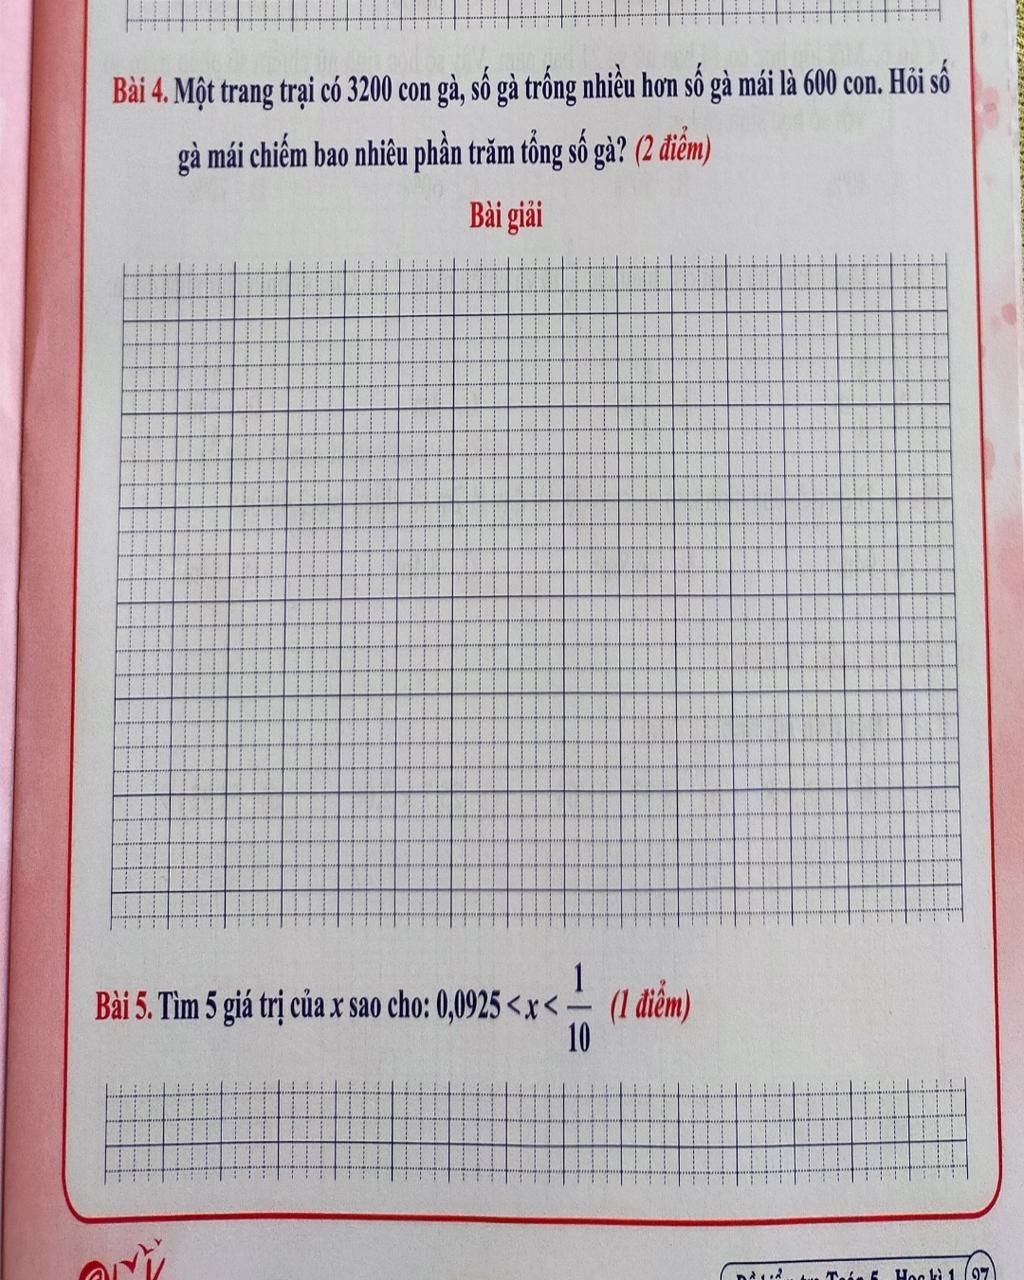 Bài 4. Một trang trại có 3200 con gà, số gà trống nhiều hơn số gà mái là 600 con. Hỏi số
gà mái chiếm bao nhiêu phần trăm tổng số gà? (2 điểm)
Bài giải
Bài 5. Tìm 5 giá trị của x sao cho: 0,0925 < x < 1/10 (1 điểm)
Đề kiểm tra Toán 5 - Học kì 1 97